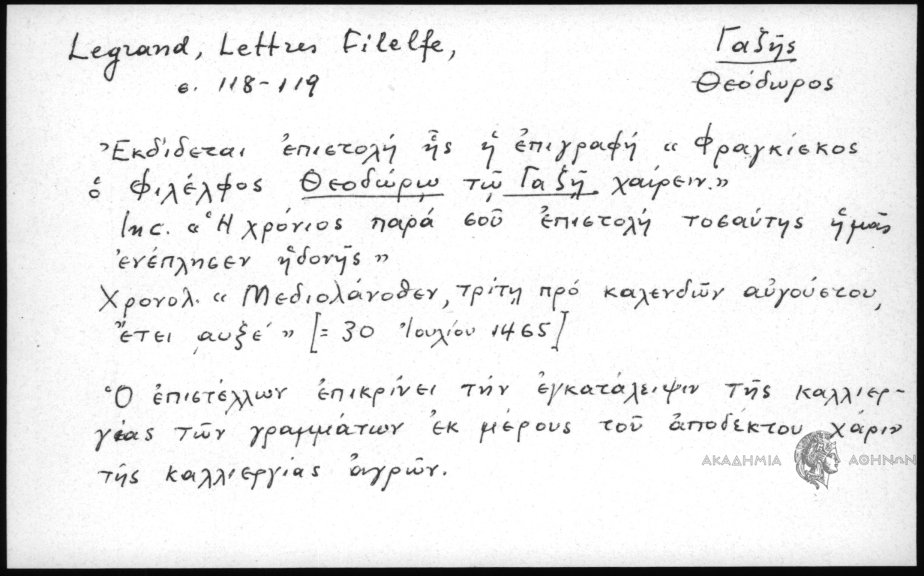 Legrand, Lettres Filelfe,
σ. 118-119
Γαζῆς
Θεόδωρος
Ἐκδίδεται ἐπιστολή ἧς ἡ ἐπιγραφή « Φραγκίσκος
ὁ Φιλέλφος Θεοδώρῳ τῷ Γαζῇ χαίρειν.»
Inc. « Ἡ χρόνιος παρά σοῦ ἐπιστολή τοσαύτης ἡμᾶς
ἐνέπλησεν ἡδονῆς »
Χρονολ. « Μεδιολάνοθεν, τρίτῃ πρό καλενδῶν αὐγούστου,
ἔτει ͵αυξε´ » [= 30 Ἰουλίου 1465]
Ὁ ἐπιστέλλων ἐπικρίνει τήν ἐγκατάλειψιν τῆς καλλιερ-
γίας τῶν γραμμάτων ἐκ μέρους τοῦ ἀποδέκτου χάριν
τῆς καλλιεργίας ἀγρῶν.
ΑΚΑΔΗΜΙΑ ΑΘΗΝΩΝ